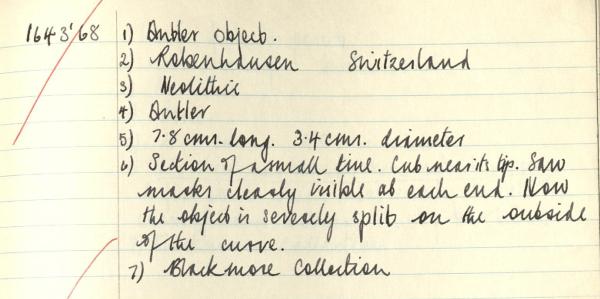 1643'68 1) Antler object.
2) Robenhausen Switzerland
3) Neolithic
4) Antler
5) 7.8 cms. long. 3.4 cms. diameter
6) Section of a small tine. Cut near its tip. Saw
marks clearly visible at each end. Now
the object is severely split on the outside
of the curve.
7) Blackmore Collection